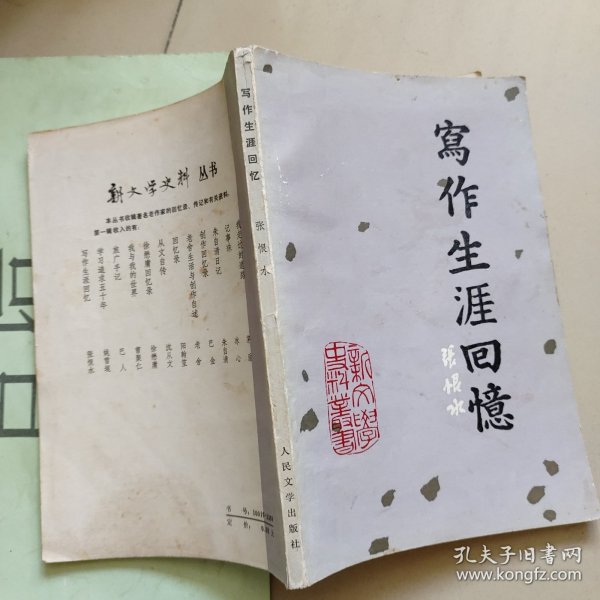 寫作生涯回憶
張恨水
新文學
史料叢書
写作生涯回忆
张恨水
人民文学出版社
新文学史料 丛书
本丛书收辑著名老作家的回忆录、传记和有关资料。
第一辑收入的有:
我走过的道路
记事珠 冰心
朱自清日记 朱自清
创作回忆录 巴金
老舍生活与创作自述 老舍
回忆录 阳翰笙
从文自传 沈从文
徐懋庸回忆录 徐懋庸
我与我的世界 曹聚仁
旅广手记 巴人
学习追求五十年 姚雪垠
写作生涯回忆 张恨水
书号:
定价:
孔夫子旧书网
www.kongfz.com